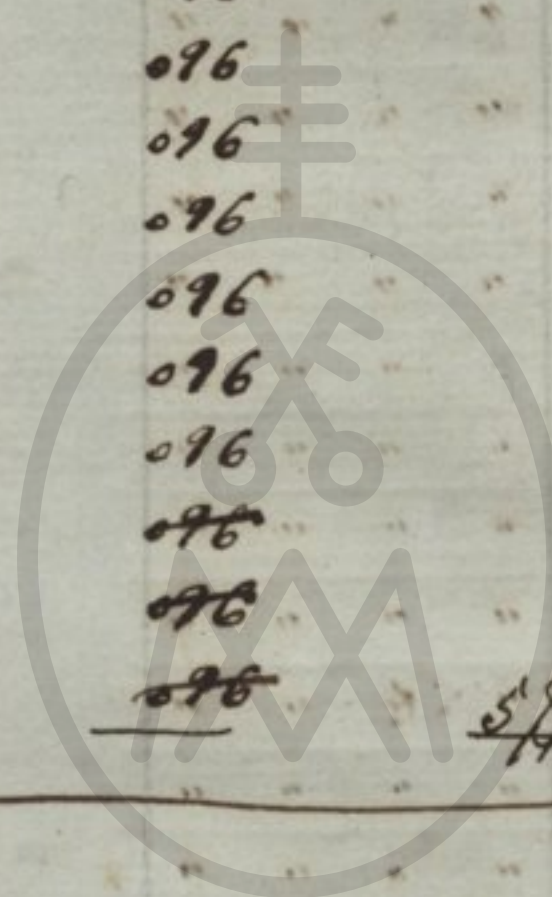 096
096
096
096
096
096
096
096
096